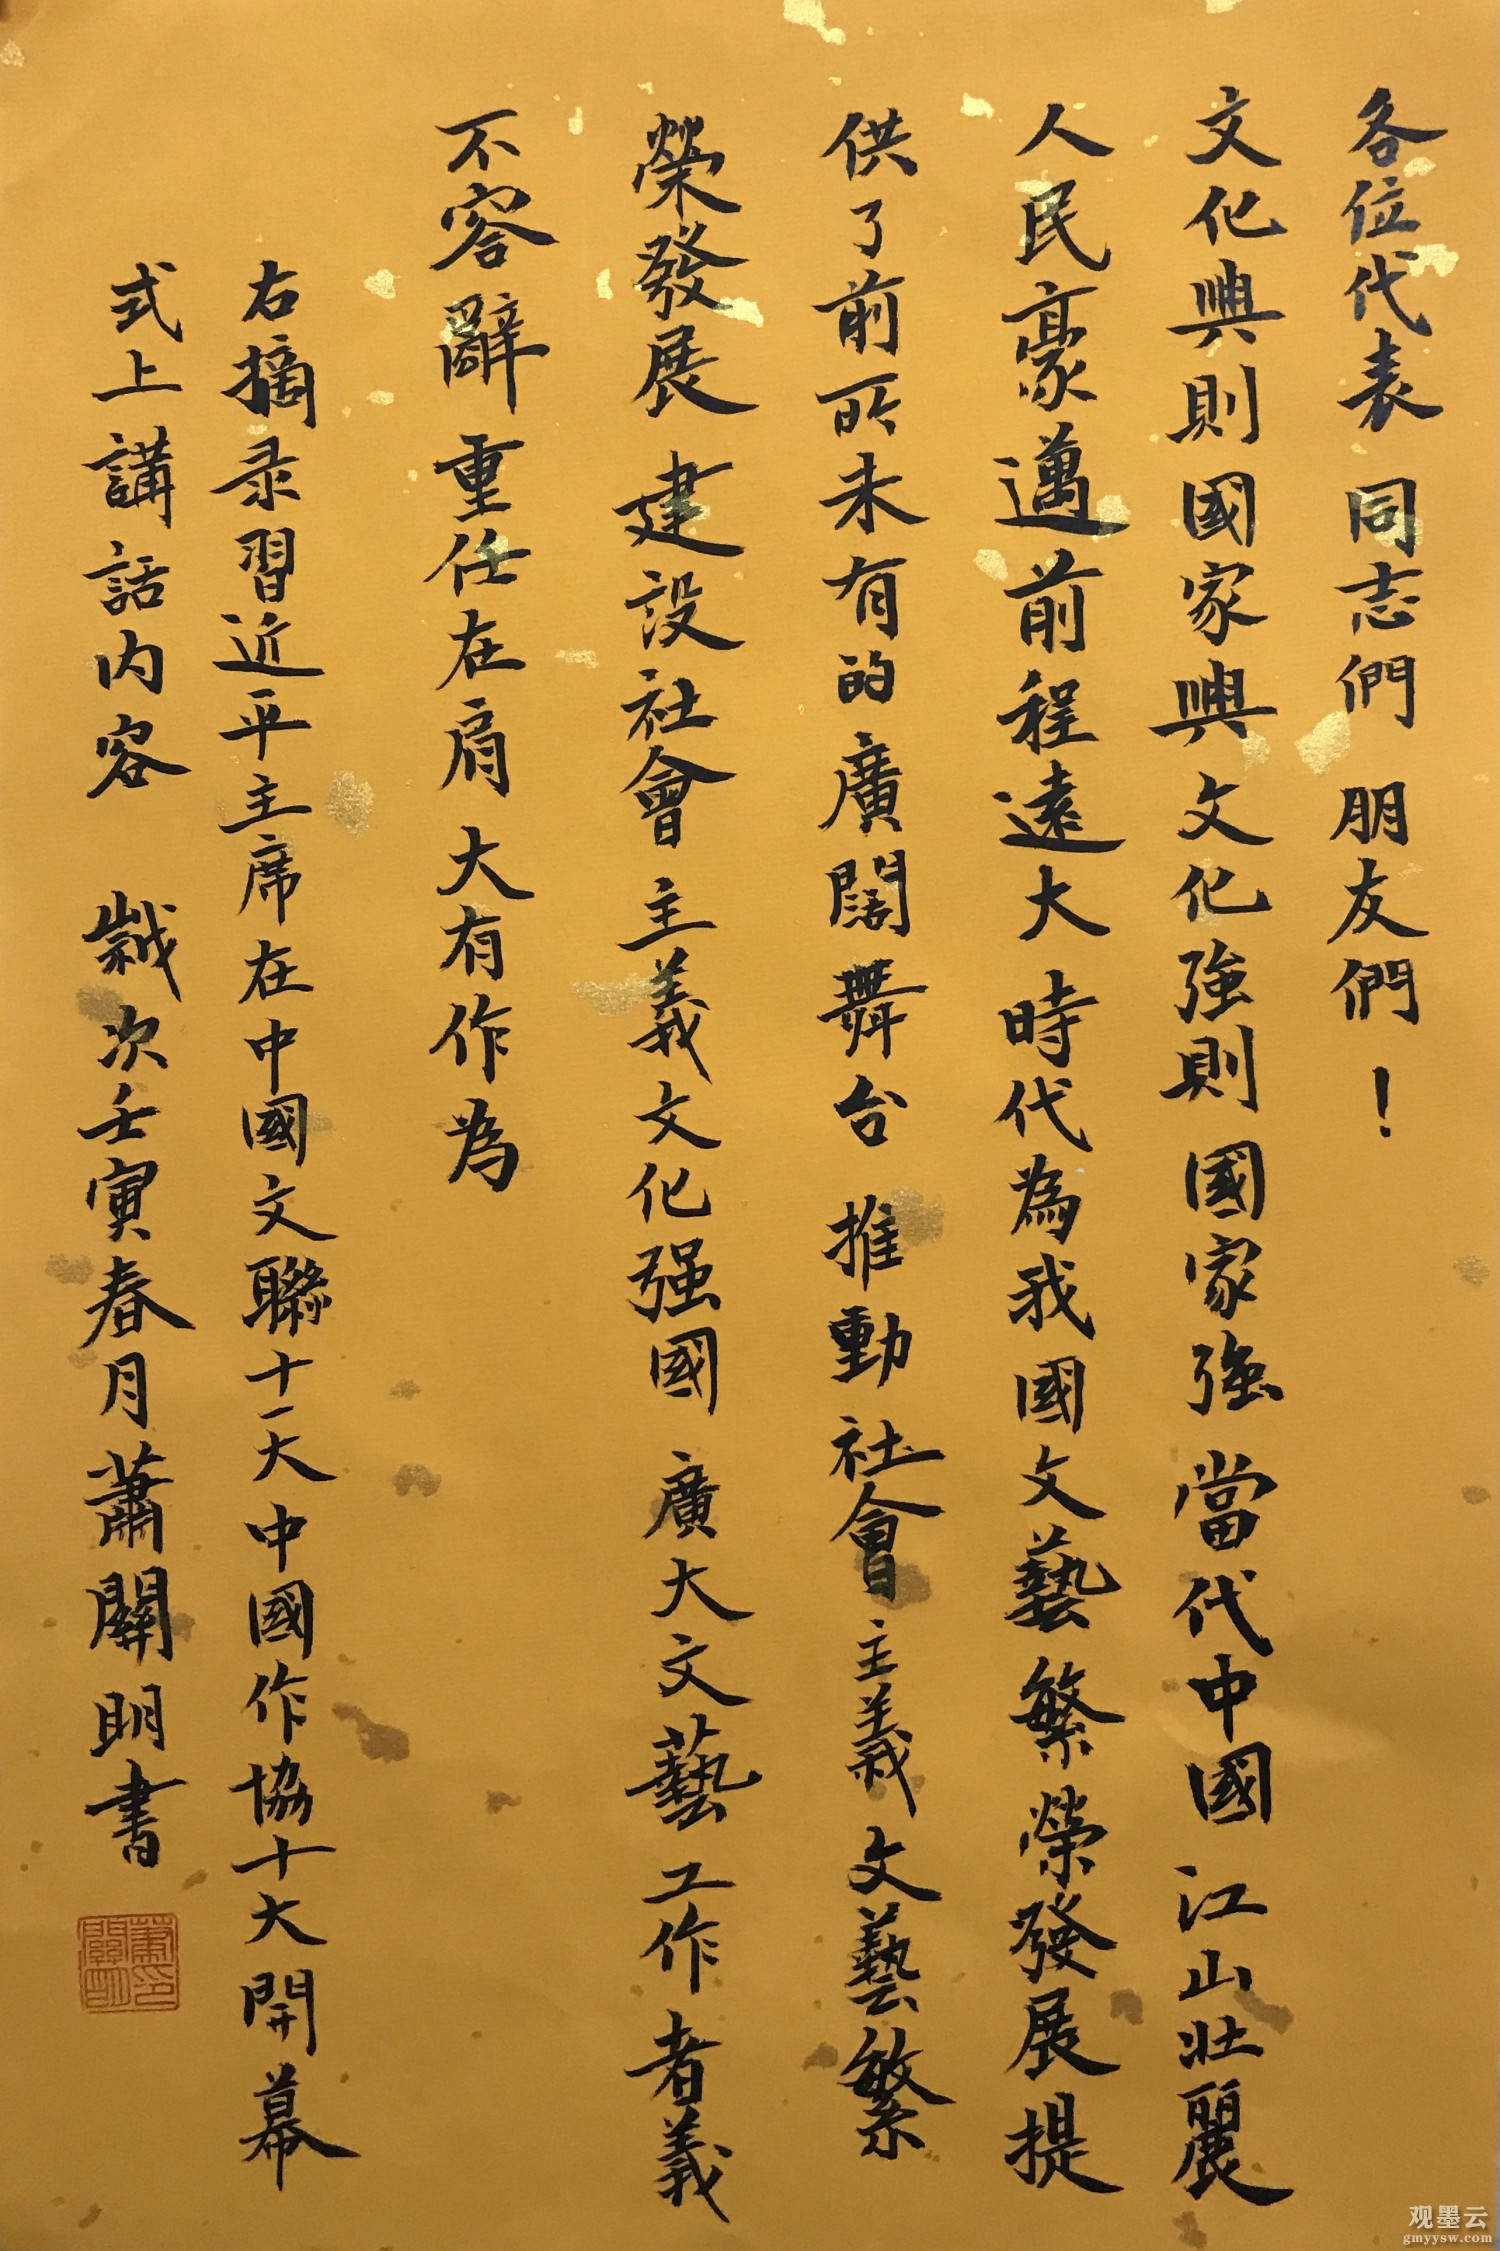 各位代表同志們朋友們！
文化興則國家興文化強則國家強當代中國江山壯麗
人民豪邁前程遠大時代為我國文藝繁榮發展提
供了前所未有的廣闊舞台推動社會主義文藝繁
榮發展建設社會主義文化强國廣大文藝工作者義
不容辭重任在肩大有作為
右摘录習近平主席在中國文聯十一大中國作協十大開幕
式上講話内容歲次壬寅春月蕭關明書
蕭印關明
观墨云
gmyysw.com